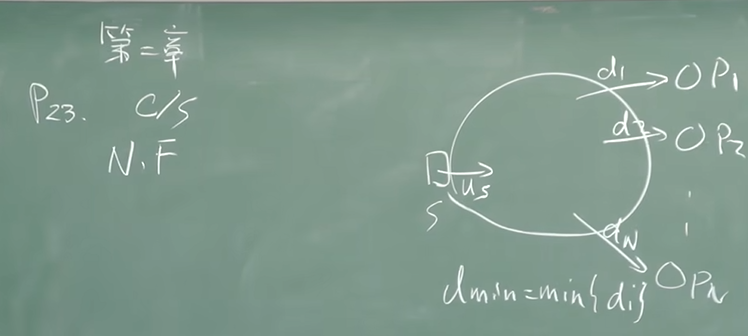 第二章
P23. C/S
N.F
d1 P1
d2 P2
us
S
dN
PN
dmin=min{di}